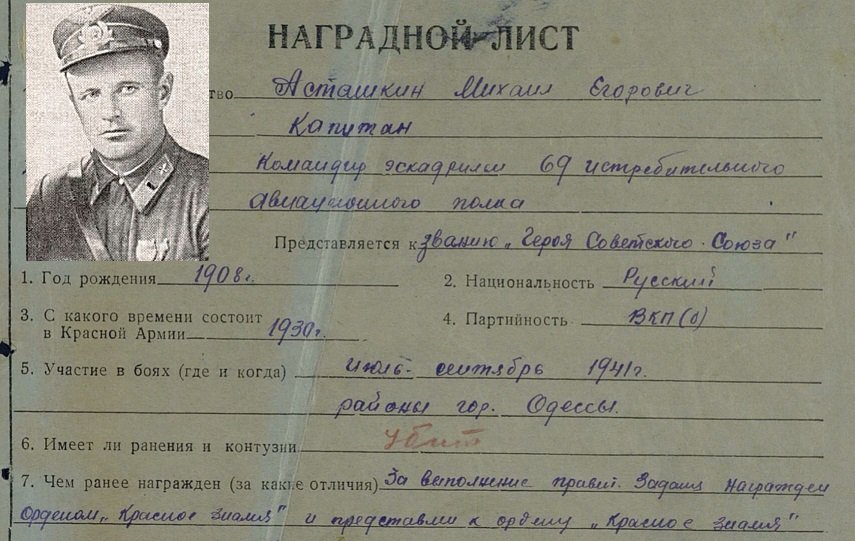 НАГРАДНОЙ ЛИСТ
тво Асташкин Михаил Егорович
Капитан
Командир эскадрильи 69 истребительного
авиационного полка
Представляется к званию „Героя Советского Союза"
1. Год рождения 1908г. 2. Национальность Русский
3. С какого времени состоит
в Красной Армии 1930г. 4. Партийность ВКП(б)
5. Участие в боях (где и когда) июль-сентябрь 1941г.
районы гор. Одессы.
6. Имеет ли ранения и контузии убит
7. Чем ранее награжден (за какие отличия) За выполнение правит. Задания награжден
Орденом „Красное знамя" и представлен к ордену „Красное знамя"